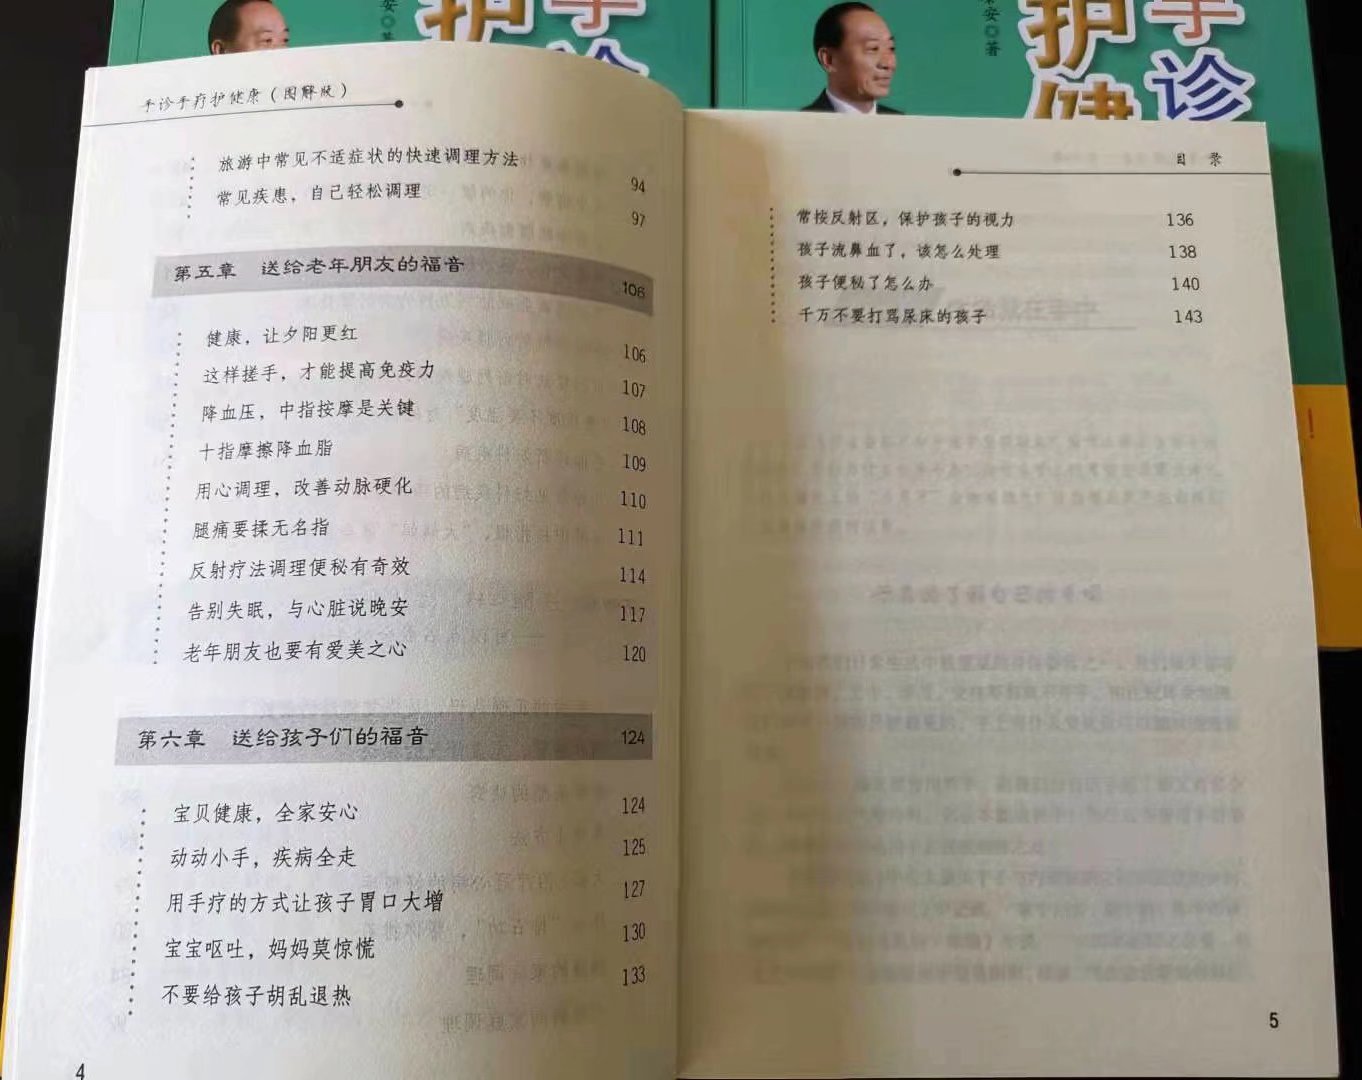 安◎著
护
手
诊
安◎著
护
手
诊
健
手诊手疗护健康（图解版）
旅游中常见不适症状的快速调理方法 94
常见疾患，自己轻松调理 97
第五章 送给老年朋友的福音 106
健康，让夕阳更红 106
这样搓手，才能提高免疫力 107
降血压，中指按摩是关键 108
十指摩擦降血脂 109
用心调理，改善动脉硬化 110
腿痛要揉无名指 111
反射疗法调理便秘有奇效 114
告别失眠，与心脏说晚安 117
老年朋友也要有爱美之心 120
第六章 送给孩子们的福音 124
宝贝健康，全家安心 124
动动小手，疾病全走 125
用手疗的方式让孩子胃口大增 127
宝宝呕吐，妈妈莫惊慌 130
不要给孩子胡乱退热 133
4
目 录
常按反射区，保护孩子的视力 136
孩子流鼻血了，该怎么处理 138
孩子便秘了怎么办 140
千万不要打骂尿床的孩子 143
5
！